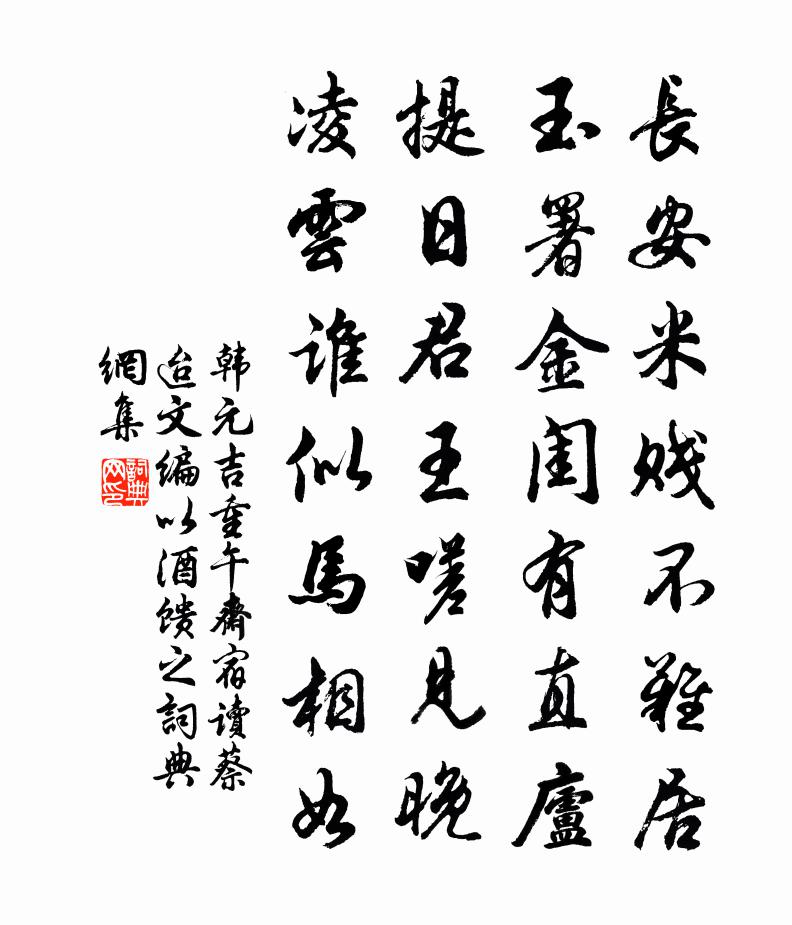 長安米賤不難居
玉署金閨有直廬
提日君王嗟見晚
凌雲誰似馬相如
韩元吉重午齋宿讀蔡
迨文編以酒馈之詞典
網集
詞典
网印